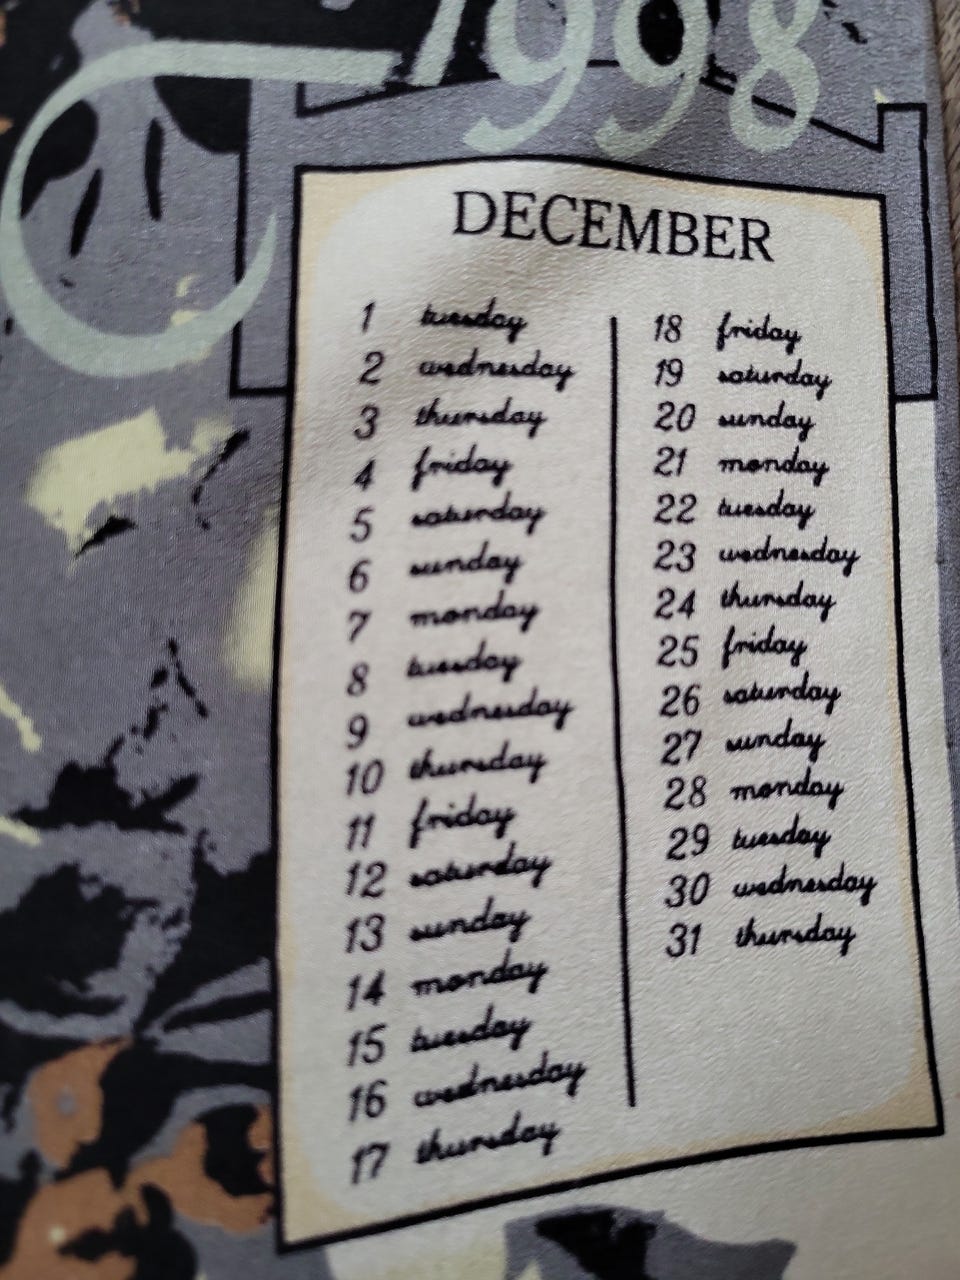 1998
DECEMBER
1 tuesday
2 wednesday
3 thursday
4 friday
5 saturday
6 sunday
7 monday
8 tuesday
9 wednesday
10 thursday
11 friday
12 saturday
13 sunday
14 monday
15 tuesday
16 wednesday
17 thursday
18 friday
19 saturday
20 sunday
21 monday
22 tuesday
23 wednesday
24 thursday
25 friday
26 saturday
27 sunday
28 monday
29 tuesday
30 wednesday
31 thursday